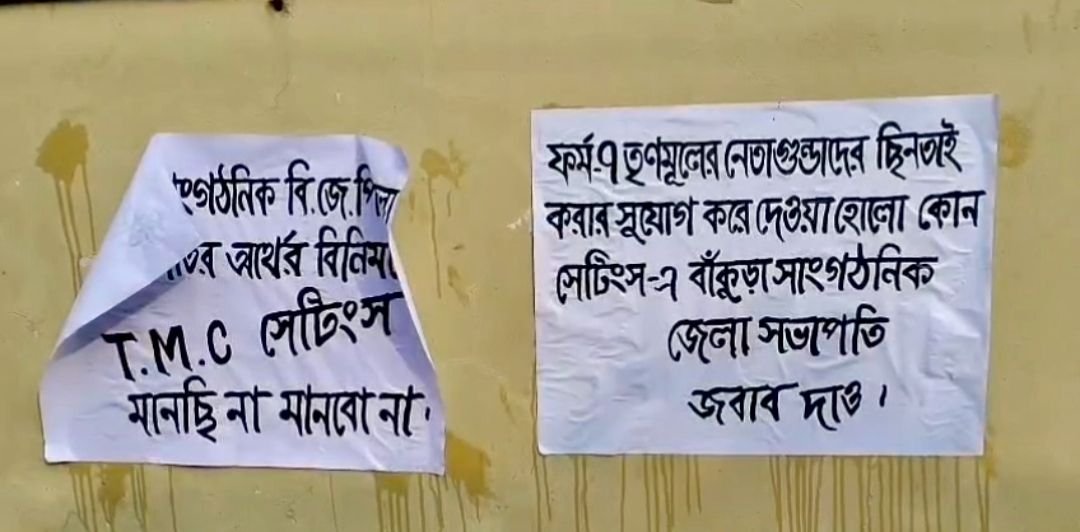 সাংগঠনিক বি.জে.পি
আর্থের বিনিময়
T.M.C সেটিংস
মানছি না মানবো না।
ফর্ম-৭ তৃণমূলের নেতাগুন্ডাদের ছিনতাই
করার সুযোগ করে দেওয়া হোলো কোন
সেটিংস-এ বাঁকুড়া সাংগঠনিক
জেলা সভাপতি
জবাব দাও।